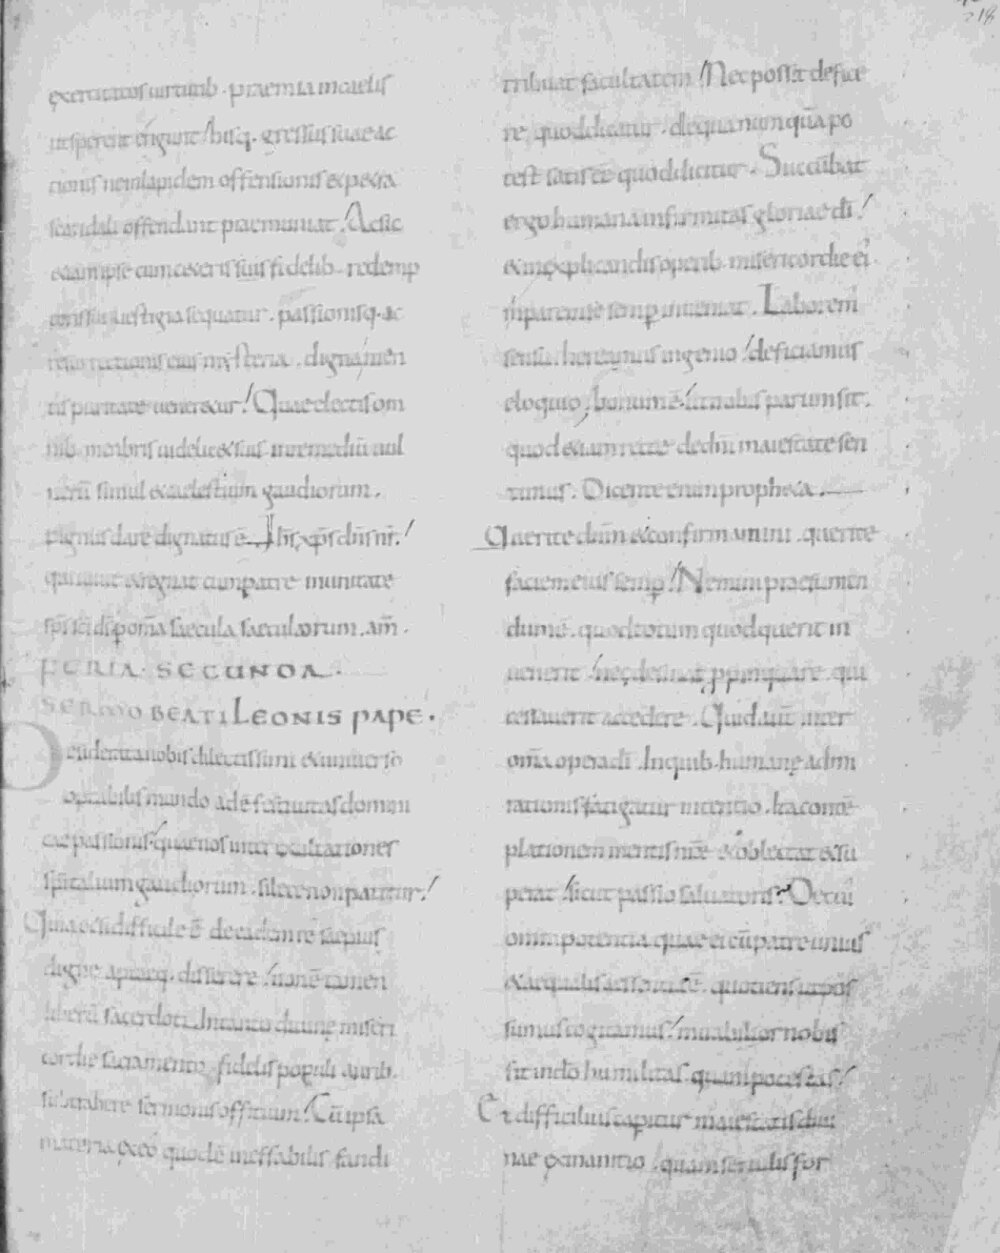 218
exercitatos uirtutib. praemia inuelis
ut sperent erigunt! hisq. gressus suae ac
tionis ne in lapidem offensionis & petra
scandali offendant praemuniat! Ac sic
& a ipse cum ceteris suis fidelib. redemp
toris sui uestigia sequatur. passionisq. ac
resurrectionis eius mysteria. digna men
tis puritate ueneretur! Quae electis om
nib. morbis
nerū simul & caelestium gaudiorum.
pignus dare dignatus ē. Ihs xps dns nr!
qui uiuit & regnat cum patre in unitate
sps sci ds p omia saecula saeculorum. am.
FERIA SECUNDA.
SERMO BEATI LEONIS PAPE.
Desiderata nobis dilectissimi & uniuerso
optabilis mundo adest festiuitas domini
cae passionis. quae nos inter exultationes
spitalium gaudiorum. silere non patitur!
Quia & si difficile ē de eadem re saepius
digne apteq. disserere! non ē tamen
liberū sacerdoti. In tanto diuine miseri
cordie sacramento. fidelis populi aurib.
subtrahere sermonis officium! Cū ipsa
materia ex eo quod ē ineffabilis fandi
tribuat facultatem! Nec possit defice
re quod dicatur. de qua numquā po
test satis eē quod dicitur. Succūbat
ergo humana infirmitas gloriae di!
& in explicandis operib. misericordie ei'
inparem se semp inueniat. Laborem'
sensu. hereamus ingenio! deficiamus
eloquio, bonum ē! ut nobis parum sit.
quod & iam recte de dni maiestate sen
timus. Dicente enim propheta.
Querite dnm & confirmamini. querite
faciem eius semp! Nemini praesumen
dum ē. quod totum quod querit in
uenerit! ne desinat ppinquare. qui
cessauerit accedere. Quid aut inter
omia opera di. In quib. humane admi
rationis fatigatur intentio. Ita contē
plationem mentis nrē & oblectat & su
perat! sicut passio saluatoris? De cui'
omnipotentia quae ei cū patre unius
& aequalis essentie ē. quotiens ut pos
sumus cogitamus! mirabilior nobis
fit in do humilitas. quam potestas!
Et difficilius capitur maiestatis diui
nae exinanitio. quam seruilis for